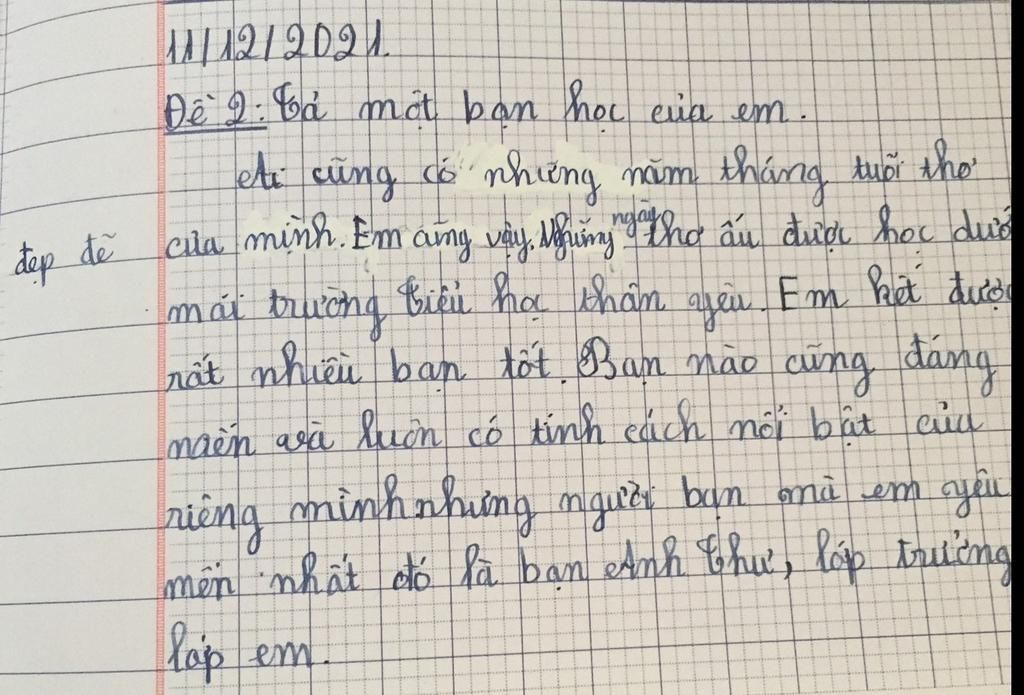 11/12/2021.
Đề 2: Tả một bạn học của em.
Ai cũng có những năm tháng tuổi thơ
đẹp đẽ của mình. Em cũng vậy. Những ngày thơ ấu được học dưới
mái trường tiểu học thân yêu. Em kết được
rất nhiều bạn tốt. Bạn nào cũng đáng
maến và luôn có tính cách nổi bật của
riêng mình nhưng người bạn mà em yêu
mến nhất đó là bạn Anh Thư, lớp trường
lớp em.